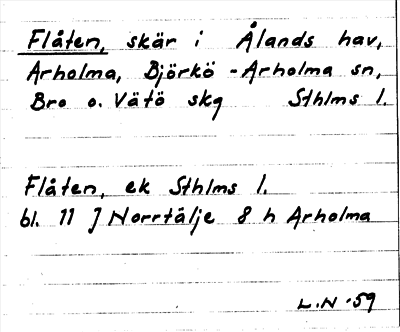 Flåten, skär i Ålands hav,
Arholma, Björkö-Arholma sn,
Bro o. Vätö skg Sthlms l.
Flåten, ek Sthlms l.
bl. 11 J Norrtälje 8 h Arholma
L.N -59